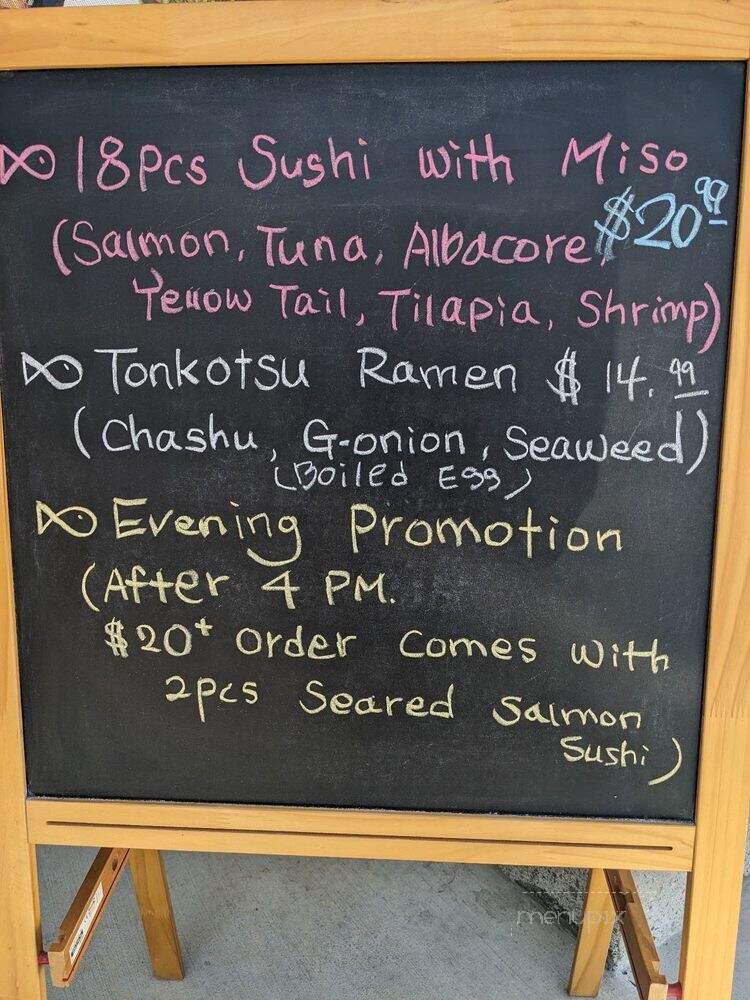 18pcs Sushi with Miso
$20.99
(Salmon, Tuna, Albacore,
Yellow Tail, Tilapia, Shrimp)
Tonkotsu Ramen $14.99
(Chashu, G-onion, Seaweed)
(Boiled Egg)
Evening Promotion
(After 4 PM.
$20+ order comes with
2pcs Seared Salmon
Sushi)
menupix